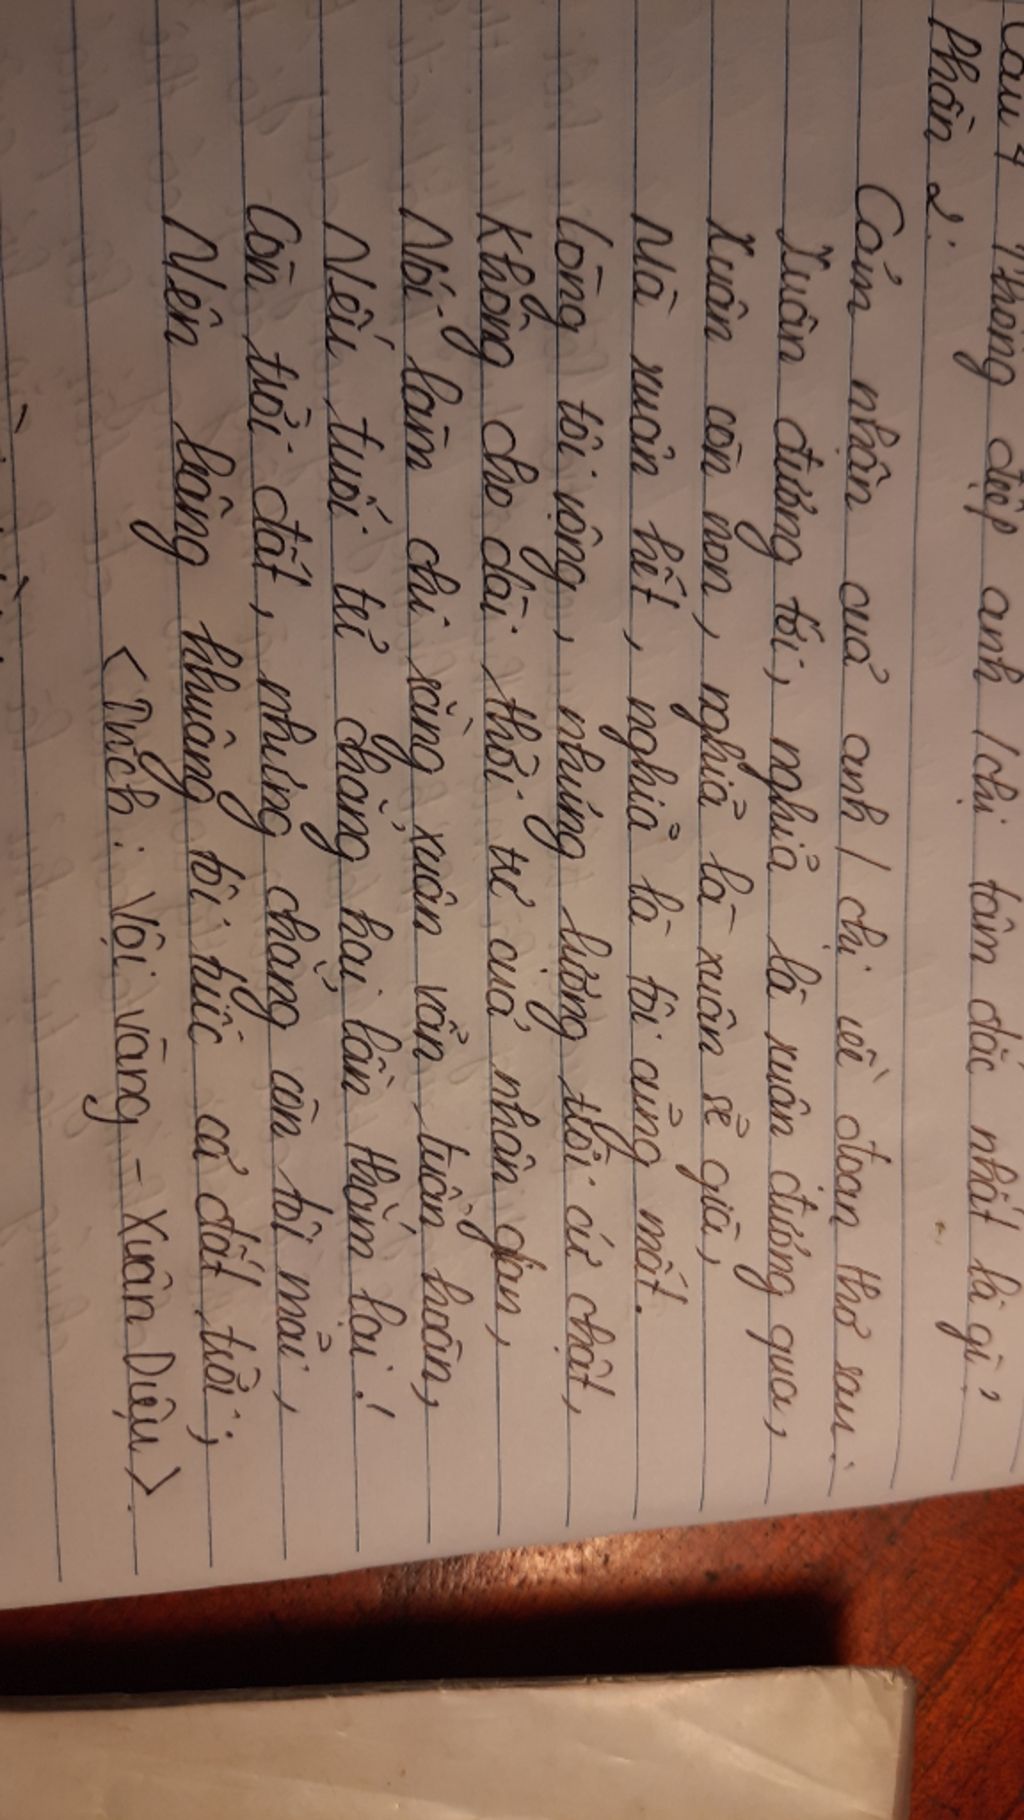 Câu 4 Thông điệp anh / chị tâm đắc nhất là gì?
Phần 2:
Cảm nhận của anh / chị về đoạn thơ sau:
Xuân đương tới, nghĩa là xuân đương qua,
Xuân còn non, nghĩa là xuân sẽ già,
Mà xuân hết, nghĩa là tôi cũng mất.
Lòng tôi rộng, nhưng lượng trời cứ chật,
Không cho dài thời trẻ của nhân gian,
Nói làm chi rằng xuân vẫn tuần hoàn,
Nếu tuổi trẻ chẳng hai lần thắm lại!
Còn trời đất, nhưng chẳng còn tôi mãi,
Nên bâng khuâng tôi tiếc cả đất trời;
<Trích: Vội vàng - Xuân Diệu>